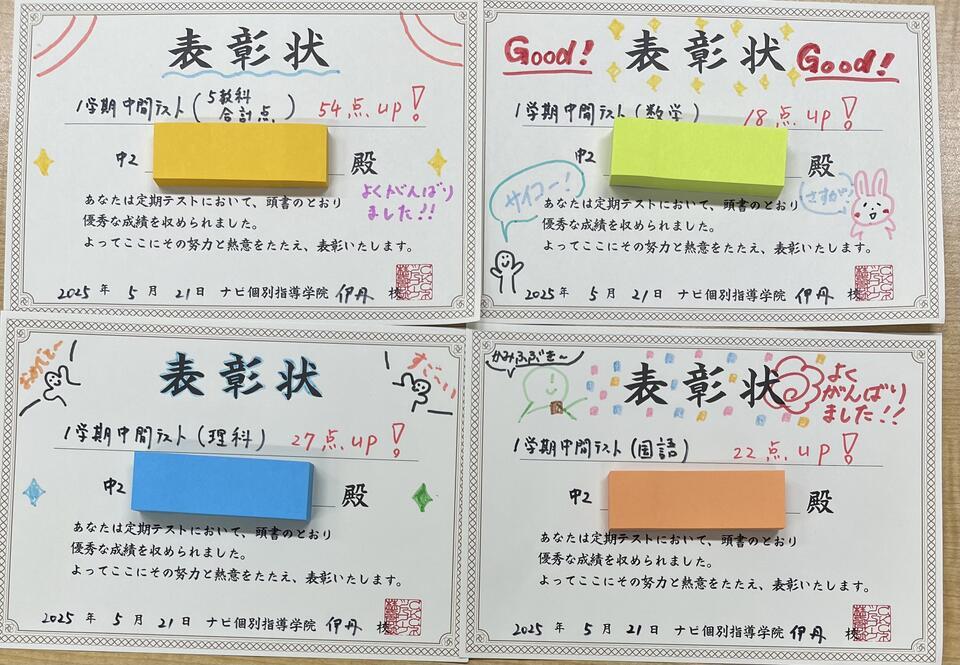 表彰状
1学期中間テスト(5教科合計点) 54点up!
中2 殿
よくがんばりました!!
あなたは定期テストにおいて、頭書のとおり
優秀な成績を収められました。
よってここにその努力と熱意をたたえ、表彰いたします。
2025年 5月 21日 ナビ個別指導学院 伊丹 校
Good! 表彰状 Good!
1学期中間テスト(数学) 18点up!
中2 殿
サイコー!
さすが!
あなたは定期テストにおいて、頭書のとおり
優秀な成績を収められました。
よってここにその努力と熱意をたたえ、表彰いたします。
2025年 5月 21日 ナビ個別指導学院 伊丹 校
おめでと〜
表彰状
すご〜い
1学期中間テスト(理科) 27点up!
中2 殿
あなたは定期テストにおいて、頭書のとおり
優秀な成績を収められました。
よってここにその努力と熱意をたたえ、表彰いたします。
2025年 5月 21日 ナビ個別指導学院 伊丹 校
かみふぶき〜
表彰状
よく
がんばり
ました!!
1学期中間テスト(国語) 22点up!
中2 殿
あなたは定期テストにおいて、頭書のとおり
優秀な成績を収められました。
よってここにその努力と熱意をたたえ、表彰いたします。
2025年 5月 21日 ナビ個別指導学院 伊丹 校